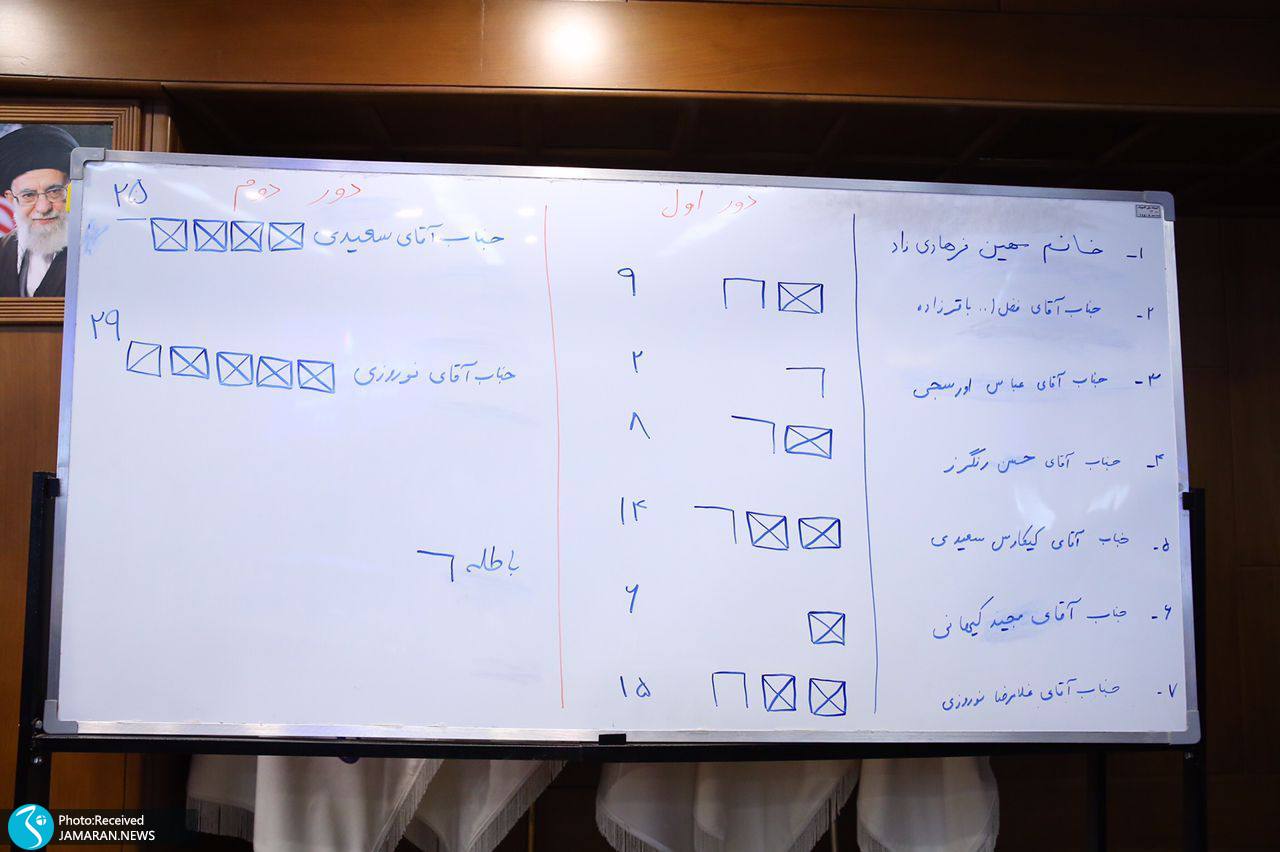 دور اول
۱- خانم مهین فرهادی راد
۲- جناب آقای فضل ا.. باقرزاده
۹
۳- جناب آقای عباس اورسجی
۲
۴- جناب آقای حسن رنگرز
۸
۵- جناب آقای کیکاوس سعیدی
۱۴
۶- جناب آقای مجید کیهانی
۶
۷- جناب آقای غلامرضا نوروزی
۱۵
دور دوم
جناب آقای سعیدی
۲۵
جناب آقای نوروزی
۲۹
باطله
Photo:Received
JAMARAN.NEWS